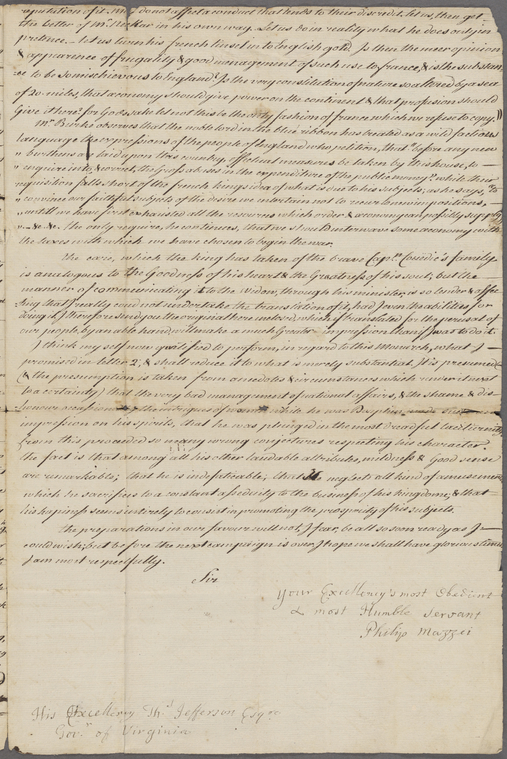 reputation of it. May do not affect a conduct that tends to their discredit. let us, then get
the better of Mr. Neckar in his own way. Let us do in reality what he does only in
pretence. — let us turn his french tinsel into English gold. Is then the meer opinion
& apparence of frugality & good management of such use to france, & is the substan
ce to be so mischievous to England? Is the very constitution of nature so altered by a sea
of 20 miles, that œconomy should give power on the continent & that profusion should
Give it here? for Gods sake let not this be the only fashion of france which we refuse to copy."
Mr. Burke observes that the noble lord in the blue ribbon has treated as a wild factious
Language the expressions of the people of England who petition, that "before any new
" burthens are laid upon this country, effectual measures be taken by this house, to
" enquire into & correct, the Gross abuses in the expenditure of the public money" while their
requisition falls short of the french king's idea of what is due to his subjects; as he says, "To
" convince our faithful subjects of the desire we entertain not to recur to new impositions,
" untill we have first exhausted all the resources which order & œconomy can possibly supply
" &c. &c. &c. the only require, he continues, that we should intersow some œconomy with
the taxes with which we have chosen to begin the war.
The care, which the king has taken of the brave Captn. Couedic's family
is analogous to the Goodness of his heart & the Greatness of his soul; but the
manner of communicating it to the Widow, through his minister, is so tender & affec
ting that I really could not undertake the translation of it, had I even the abilities for
doing it. I therefore send you the original here inclosed, which if translated for the perusal of
our people, by an able hand will make a much Greater impression than if I was to do it.
I think my self now qualified to perform, in regard to this Monarch, what I
promised in letter 2, & shall reduce it to what is merely substantial. It is presumed
(& the presumption is taken from anecdotes & circumstances which render it next
to a certainty) that the very bad management of national affairs, & the shame & dis-
honour occasioned by the intrigues of women while he was Dauphin made such
impression on his spirits, that he was plunged in the most dreadful taciturnity
from this proceeded so many wrong conjectures respecting his character.
the fact is that among all his other laudable attributes, mildness & Good sense
are remarkable; that he is indefaticable; that He neglects all kind of amusement
which he sacrifies to a constant assiduity to the business of his kingdome; & that
his happiness seems intirely to consist in promoting the prosperity of his subjects.
The preparations in our favour will not, I fear, be all so soon ready as I
could wish; but before the next campaign is over, I hope we shall have glorious times
I am most respectfully.
Sir
Your Excellency's most Obedient
& most Humble Servant
Philip Mazzei
His Excellency Ths. Jefferson Esqre.
Govr. of Virginia